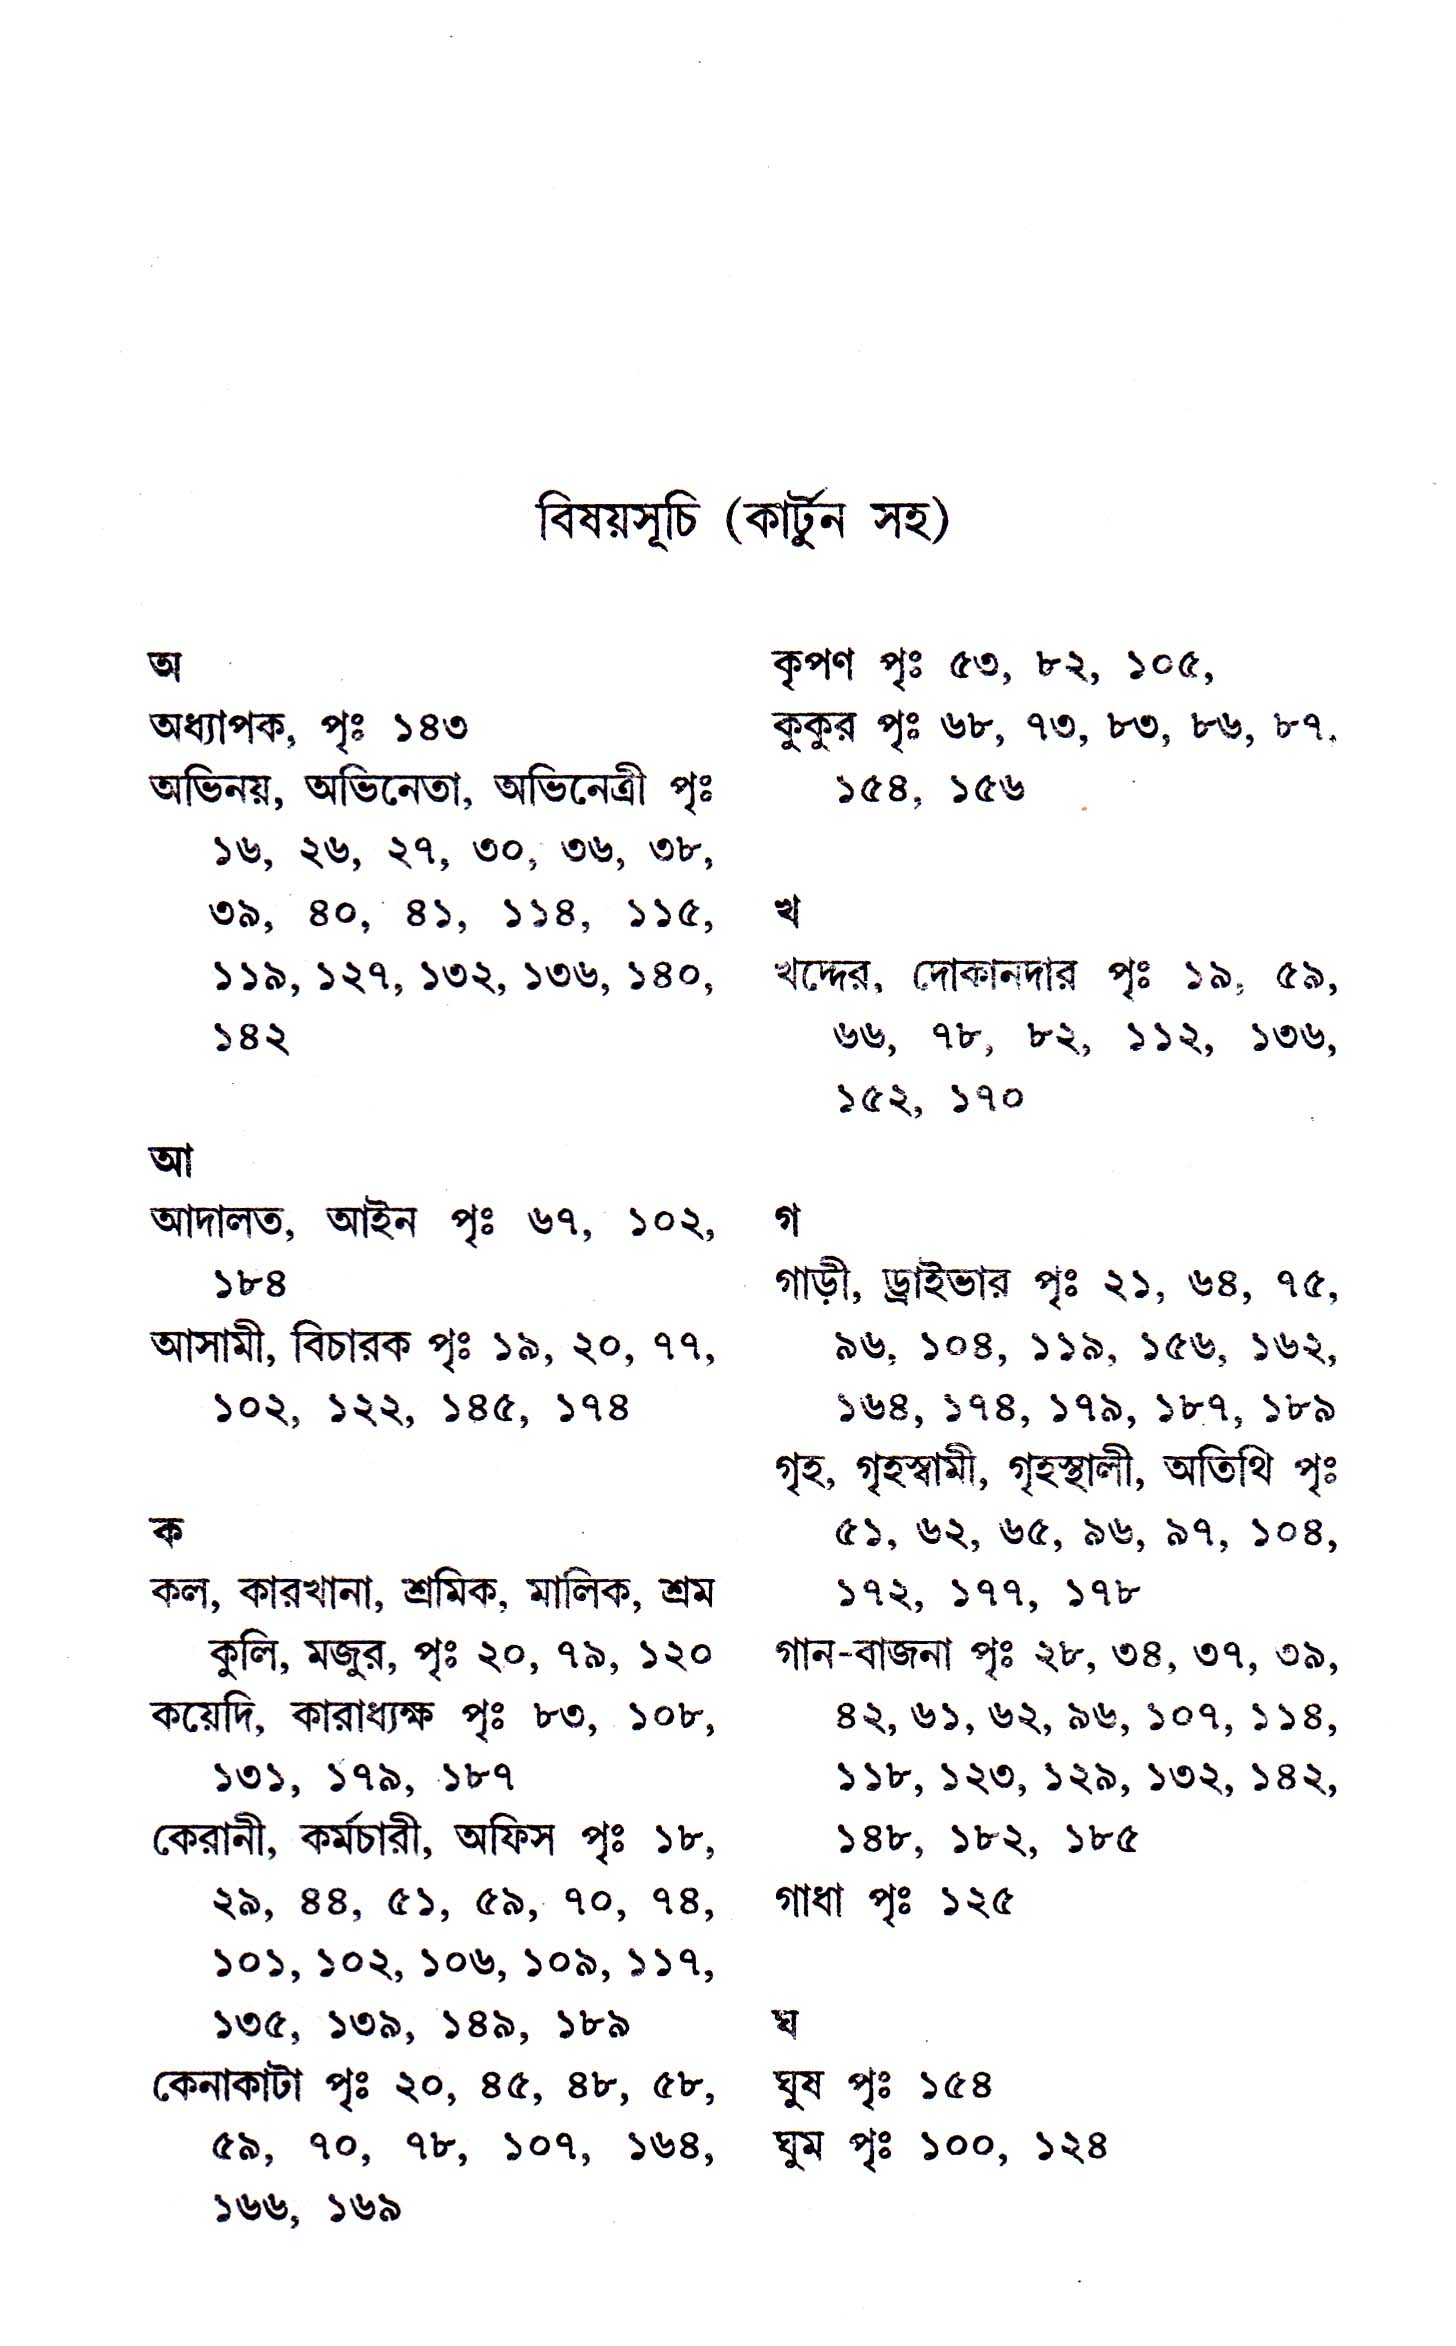 বিষয়সূচি (কার্টুন সহ)
অ
অধ্যাপক, পৃঃ ১৪৩
অভিনয়, অভিনেতা, অভিনেত্রী পৃঃ
১৬, ২৬, ২৭, ৩০, ৩৬, ৩৮,
৩৯, ৪০, ৪১, ১১৪, ১১৫,
১১৯, ১২৭, ১৩২, ১৩৬, ১৪০,
১৪২
আ
আদালত, আইন পৃঃ ৬৭, ১০২,
১৮৪
আসামী, বিচারক পৃঃ ১৯, ২০, ৭৭,
১০২, ১২২, ১৪৫, ১৭৪
ক
কল, কারখানা, শ্রমিক, মালিক, শ্রম
কুলি, মজুর, পৃঃ ২০, ৭৯, ১২০
কয়েদি, কারাধ্যক্ষ পৃঃ ৮৩, ১০৮,
১৩১, ১৭৯, ১৮৭
কেরানী, কর্মচারী, অফিস পৃঃ ১৮,
২৯, ৪৪, ৫১, ৫৯, ৭০, ৭৪,
১০১, ১০২, ১০৬, ১০৯, ১১৭,
১৩৫, ১৩৯, ১৪৯, ১৮৯
কেনাকাটা পৃঃ ২০, ৪৫, ৪৮, ৫৮,
৫৯, ৭০, ৭৮, ১০৭, ১৬৪,
১৬৬, ১৬৯
কৃপণ পৃঃ ৫৩, ৮২, ১০৫,
কুকুর পৃঃ ৬৮, ৭৩, ৮৩, ৮৬, ৮৭,
১৫৪, ১৫৬
খ
খদ্দের, দোকানদার পৃঃ ১৯, ৫৯,
৬৬, ৭৮, ৮২, ১১২, ১৩৬,
১৫২, ১৭০
গ
গাড়ী, ড্রাইভার পৃঃ ২১, ৬৪, ৭৫,
৯৬, ১০৪, ১১৯, ১৫৬, ১৬২,
১৬৪, ১৭৪, ১৭৯, ১৮৭, ১৮৯
গৃহ, গৃহস্বামী, গৃহস্থালী, অতিথি পৃঃ
৫১, ৬২, ৬৫, ৯৬, ৯৭, ১০৪,
১৭২, ১৭৭, ১৭৮
গান-বাজনা পৃঃ ২৮, ৩৪, ৩৭, ৩৯,
৪২, ৬১, ৬২, ৯৬, ১০৭, ১১৪,
১১৮, ১২৩, ১২৯, ১৩২, ১৪২,
১৪৮, ১৮২, ১৮৫
গাধা পৃঃ ১২৫
ঘ
ঘুষ পৃঃ ১৫৪
ঘুম পৃঃ ১০০, ১২৪